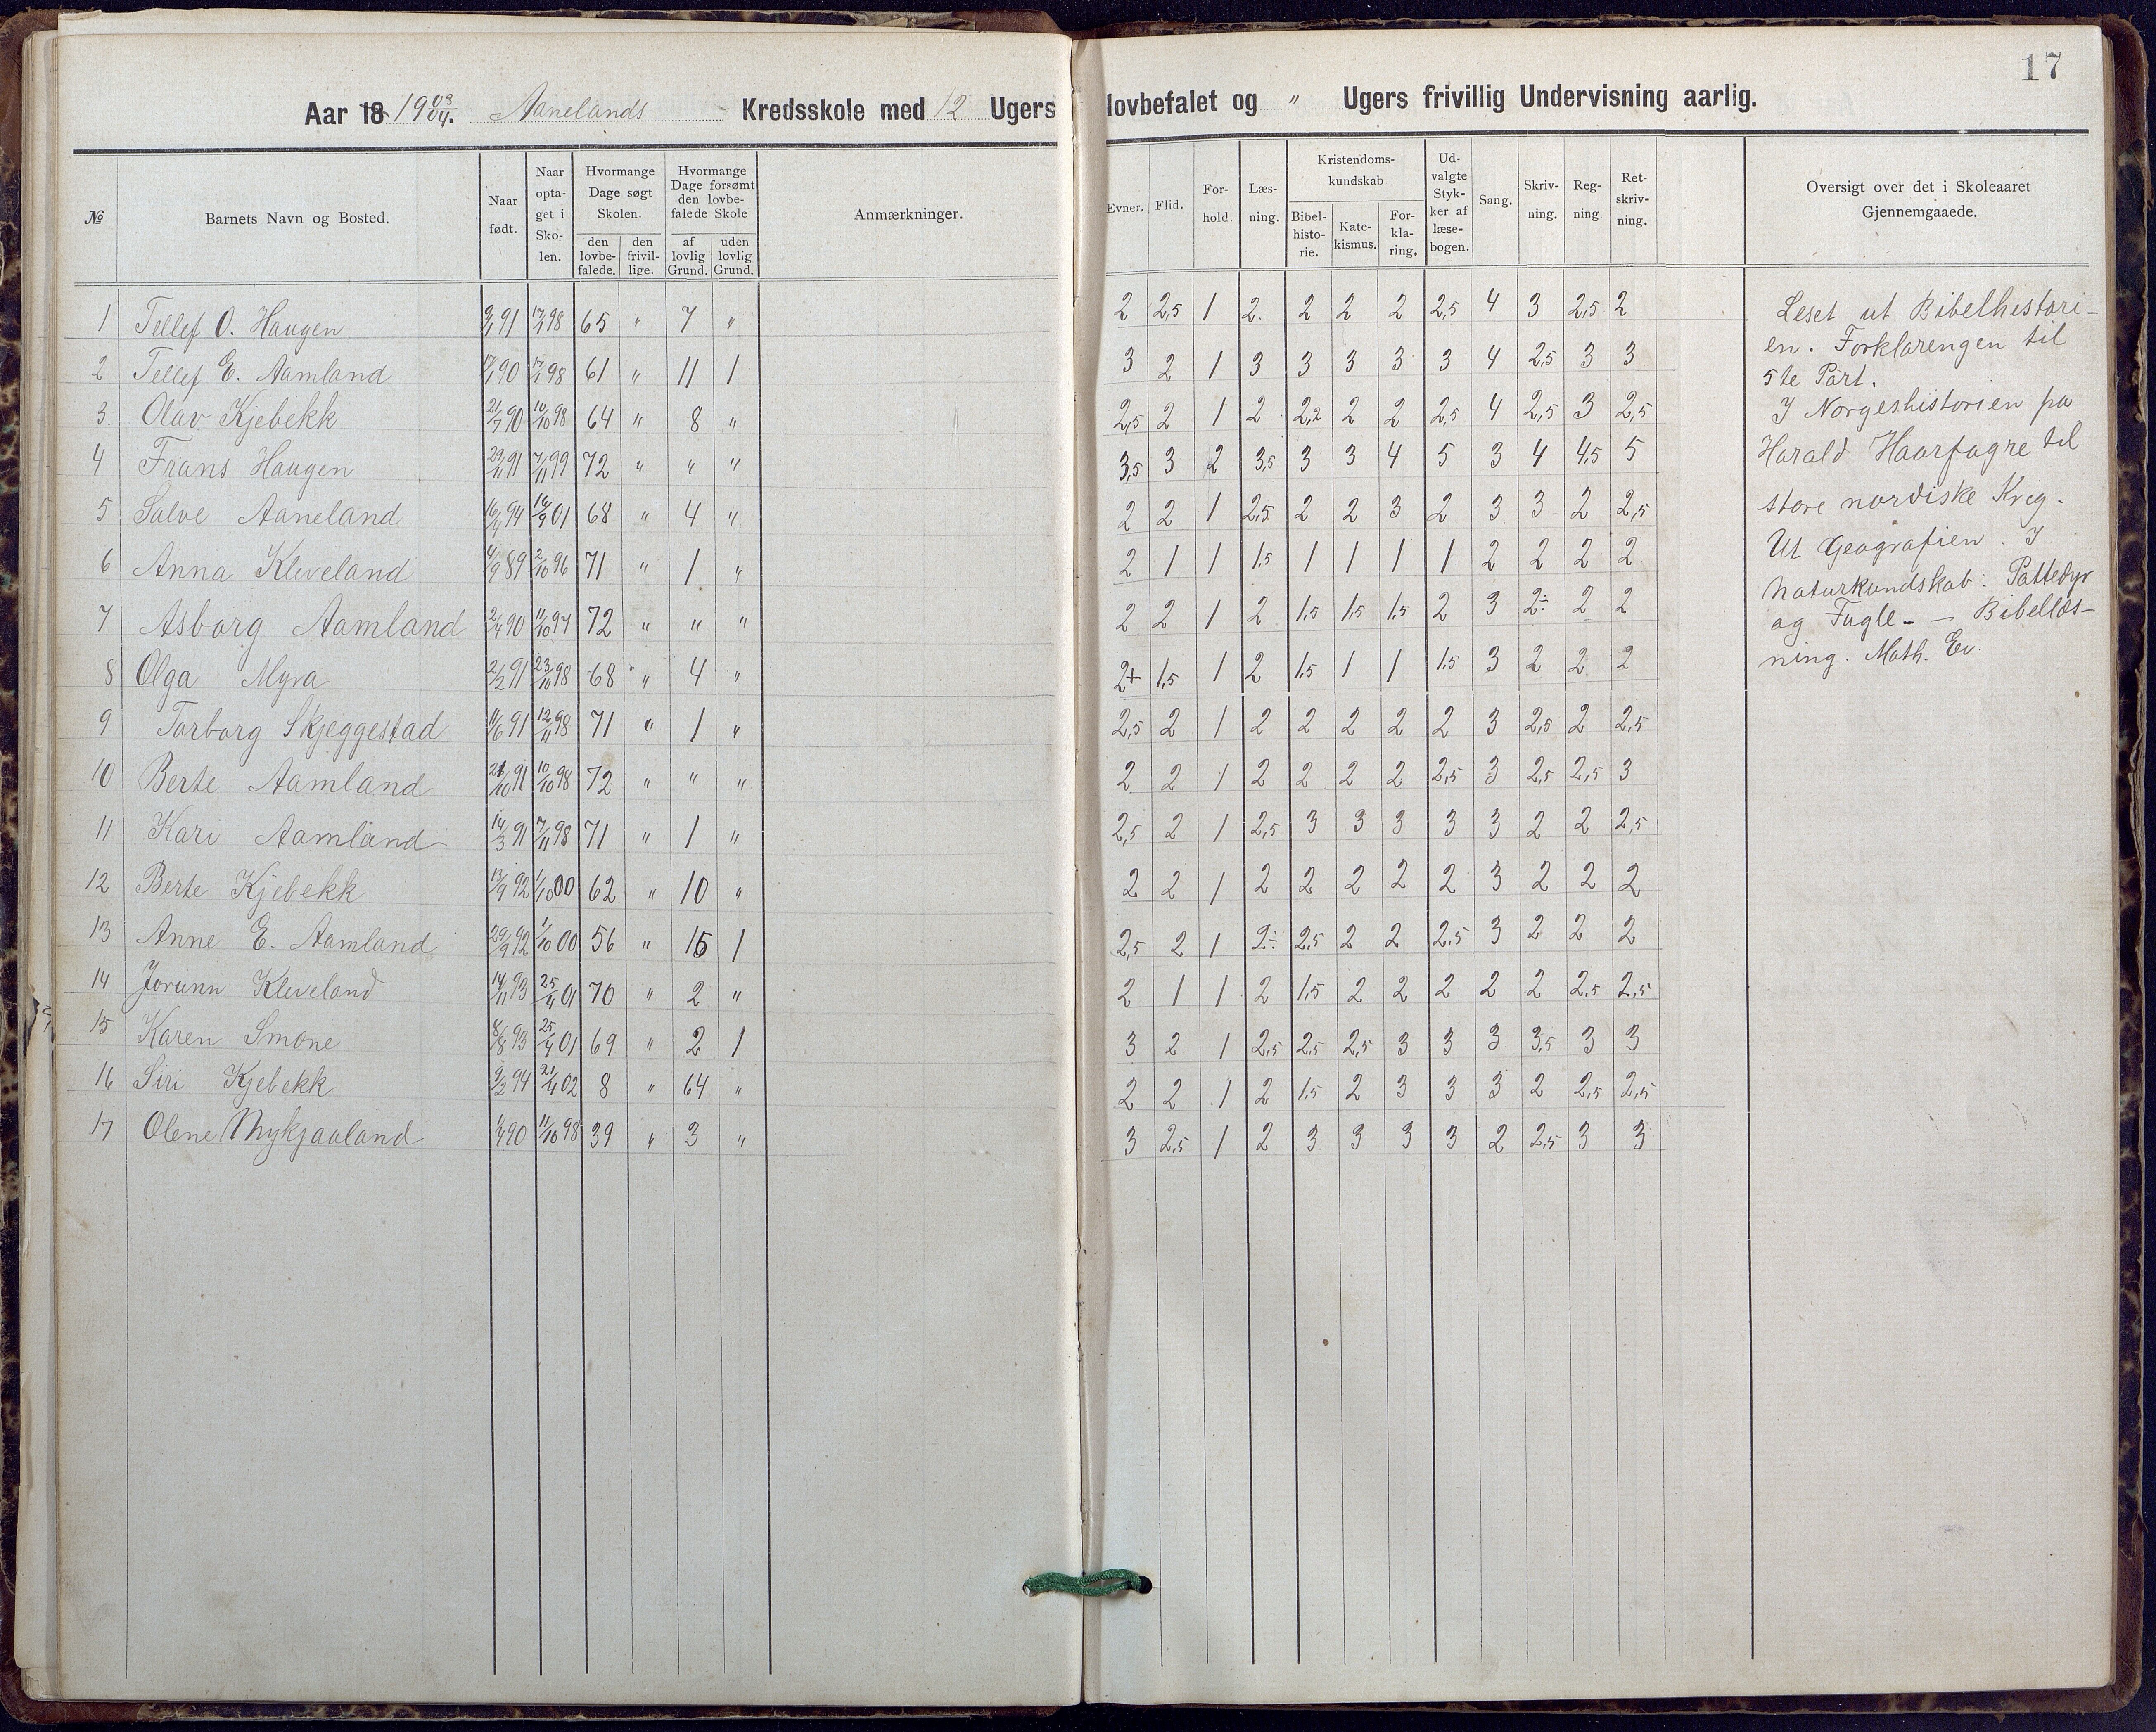 17
Aar 18 1903/04. Aanelands Kredsskole med 12 Ugers lovbefalet og " Ugers frivillig Undervisning aarlig.
№ | Barnets Navn og Bosted. | Naar født. | Naar optaget i Skolen. | Hvormange Dage søgt Skolen. den lovbefalede. | den frivillige. | Hvormange Dage forsømt den lovbefalede Skole af lovlig Grund. | uden lovlig Grund. | Anmærkninger. | Evner. | Flid. | Forhold. | Læsning. | Kristendomskundskab Bibelhistorie. | Katekismus. | Forklaring. | Udvalgte Stykker af læsebogen. | Sang. | Skrivning. | Regning | Retskrivning. | Oversigt over det i Skoleaaret Gjennemgaaede.
1 Tellef O. Haugen 91 98 65 " 7 " 2 2,5 1 2. 2 2 2 2,5 4 3 2,5 2
2 Tellef E. Aamland 90 98 61 " 11 1 3 2 1 3 3 3 3 3 4 2,5 3 3
3. Olav Kjebekk 21/7 90 10/10 98 64 " 8 " 2,5 2 1 2 2,2 2 2 2,5 4 2,5 3 2,5
4 Frans Haugen 29/11 91 7/11 99 72 " " " 3,5 3 2 3,5 3 3 4 5 3 4 4,5 5
5 Salve Aaneland 94 16/9 01 68 " 4 " 2 2 1 2,5 2 2 3 2 3 3 2 2,5
6 Anna Kleveland 4/9 89 2/10 96 71 " 1 " 2 1 1 1,5 1 1 1 1 2 2 2 2
7 Asborg Aamland 2/4 90 11/10 97 72 " " " 2 2 1 2 1,5 1,5 1,5 2 3 2÷ 2 2
8 Olga Myra 2/2 91 23/10 98 68 " 4 " 2+ 1,5 1 2 1,5 1 1 1,5 3 2 2 2
9 Torborg Skjeggestad 11/6 91 12/11 98 71 " 1 " 2,5 2 1 2 2 2 2 2 3 2,5 2 2,5
10 Berte Aamland 21/10 91 10/10 98 72 " " " 2 2 1 2 2 2 2 2,5 3 2,5 2,5 3
11 Kari Aamland 14/3 91 7/11 98 71 " 1 " 2,5 2 1 2,5 3 3 3 3 3 2 2 2,5
12 Berte Kjebekk 13/9 92 1/10 00 62 " 10 " 2 2 1 2 2 2 2 2 3 2 2 2
13 Anne E. Aamland 29/9 92 1/10 00 56 " 15 1 2,5 2 1 2÷ 2,5 2 2 2,5 3 2 2 2
14 Jorunn Kleveland 14/11 93 25/4 01 70 " 2 " 2 1 1 2 1,5 2 2 2 2 2 2,5 2,5
15 Karen Smone 8/8 93 25/4 01 69 " 2 1 3 2 1 2,5 2,5 2,5 3 3 3 3,5 3 3
16 Siri Kjebekk 9/2 94 21/4 02 8 " 64 " 2 2 1 2 1,5 2 3 3 3 2 2,5 2,5
17 Olene Mykjaaland 90 11/10 98 39 " 3 " 3 2,5 1 2 3 3 3 3 2 2,5 3 3
Leset ut Bibelhistori-
en. Forklarengen til
5te Part.
I Norgeshistorien fra
Harald Haarfagre til
store nordiske Krig.
Ut Geografien. I
Naturkundskab: Pattedyr
og Fugle. — Bibellæs-
ning. Math. Ev.